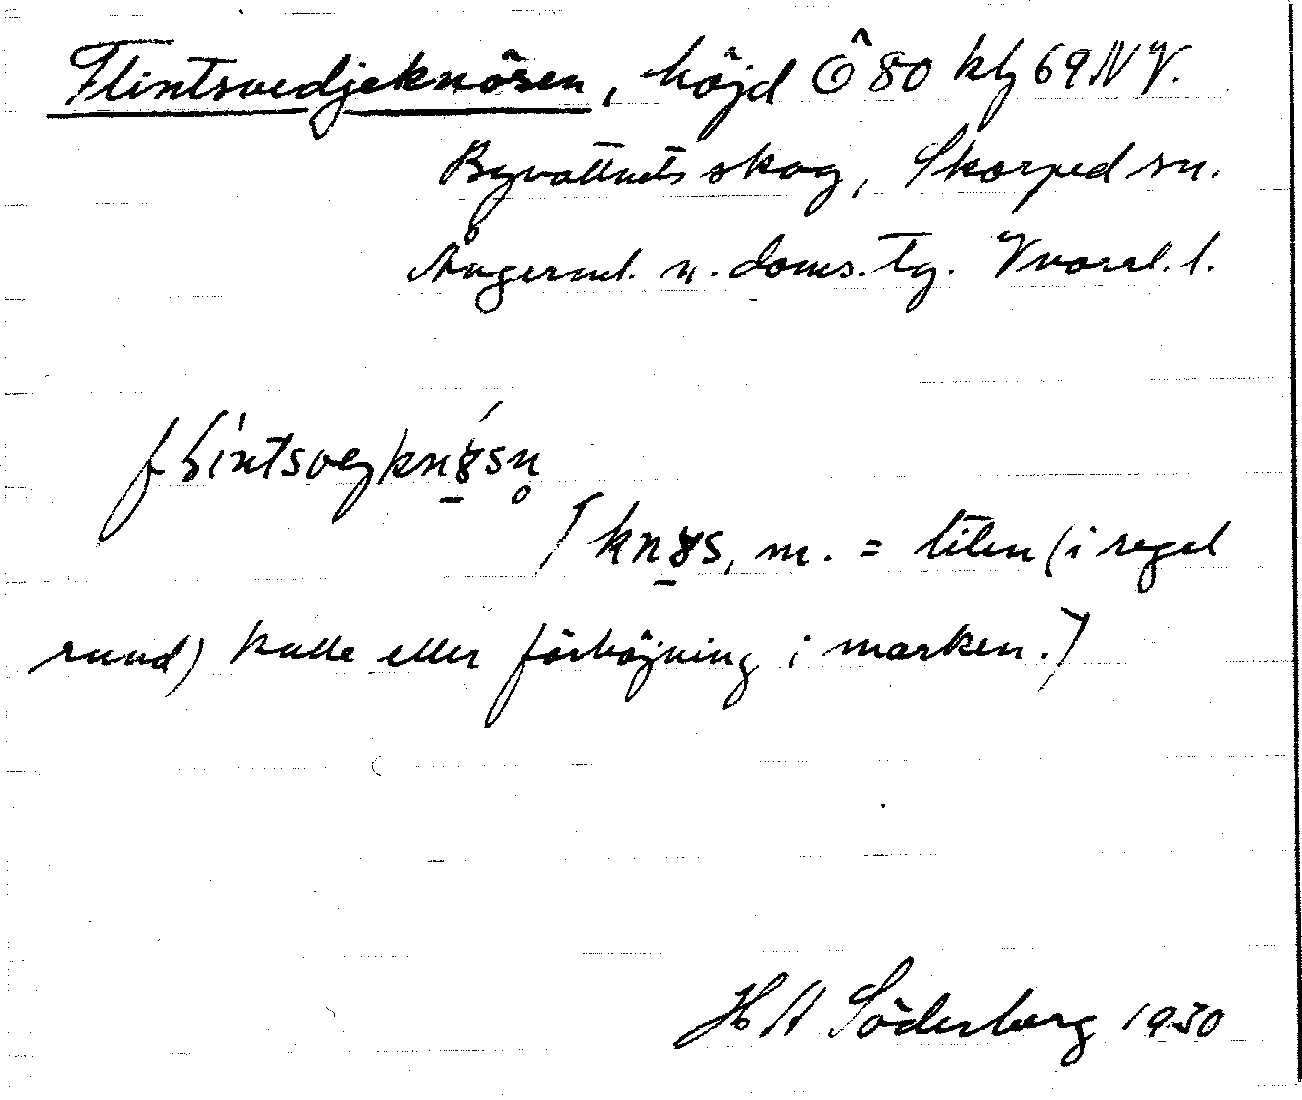 Flintsvedjeknösen, höjd Ô 80 kbl 69 NV.
Byvattnets skog, Skorped sn.
Ångerml. n. doms. tg. Vnorrl. l.
knɤs, m. = liten (i regel
rund) kulle eller förhöjning i marken.]
H A Söderberg 1930